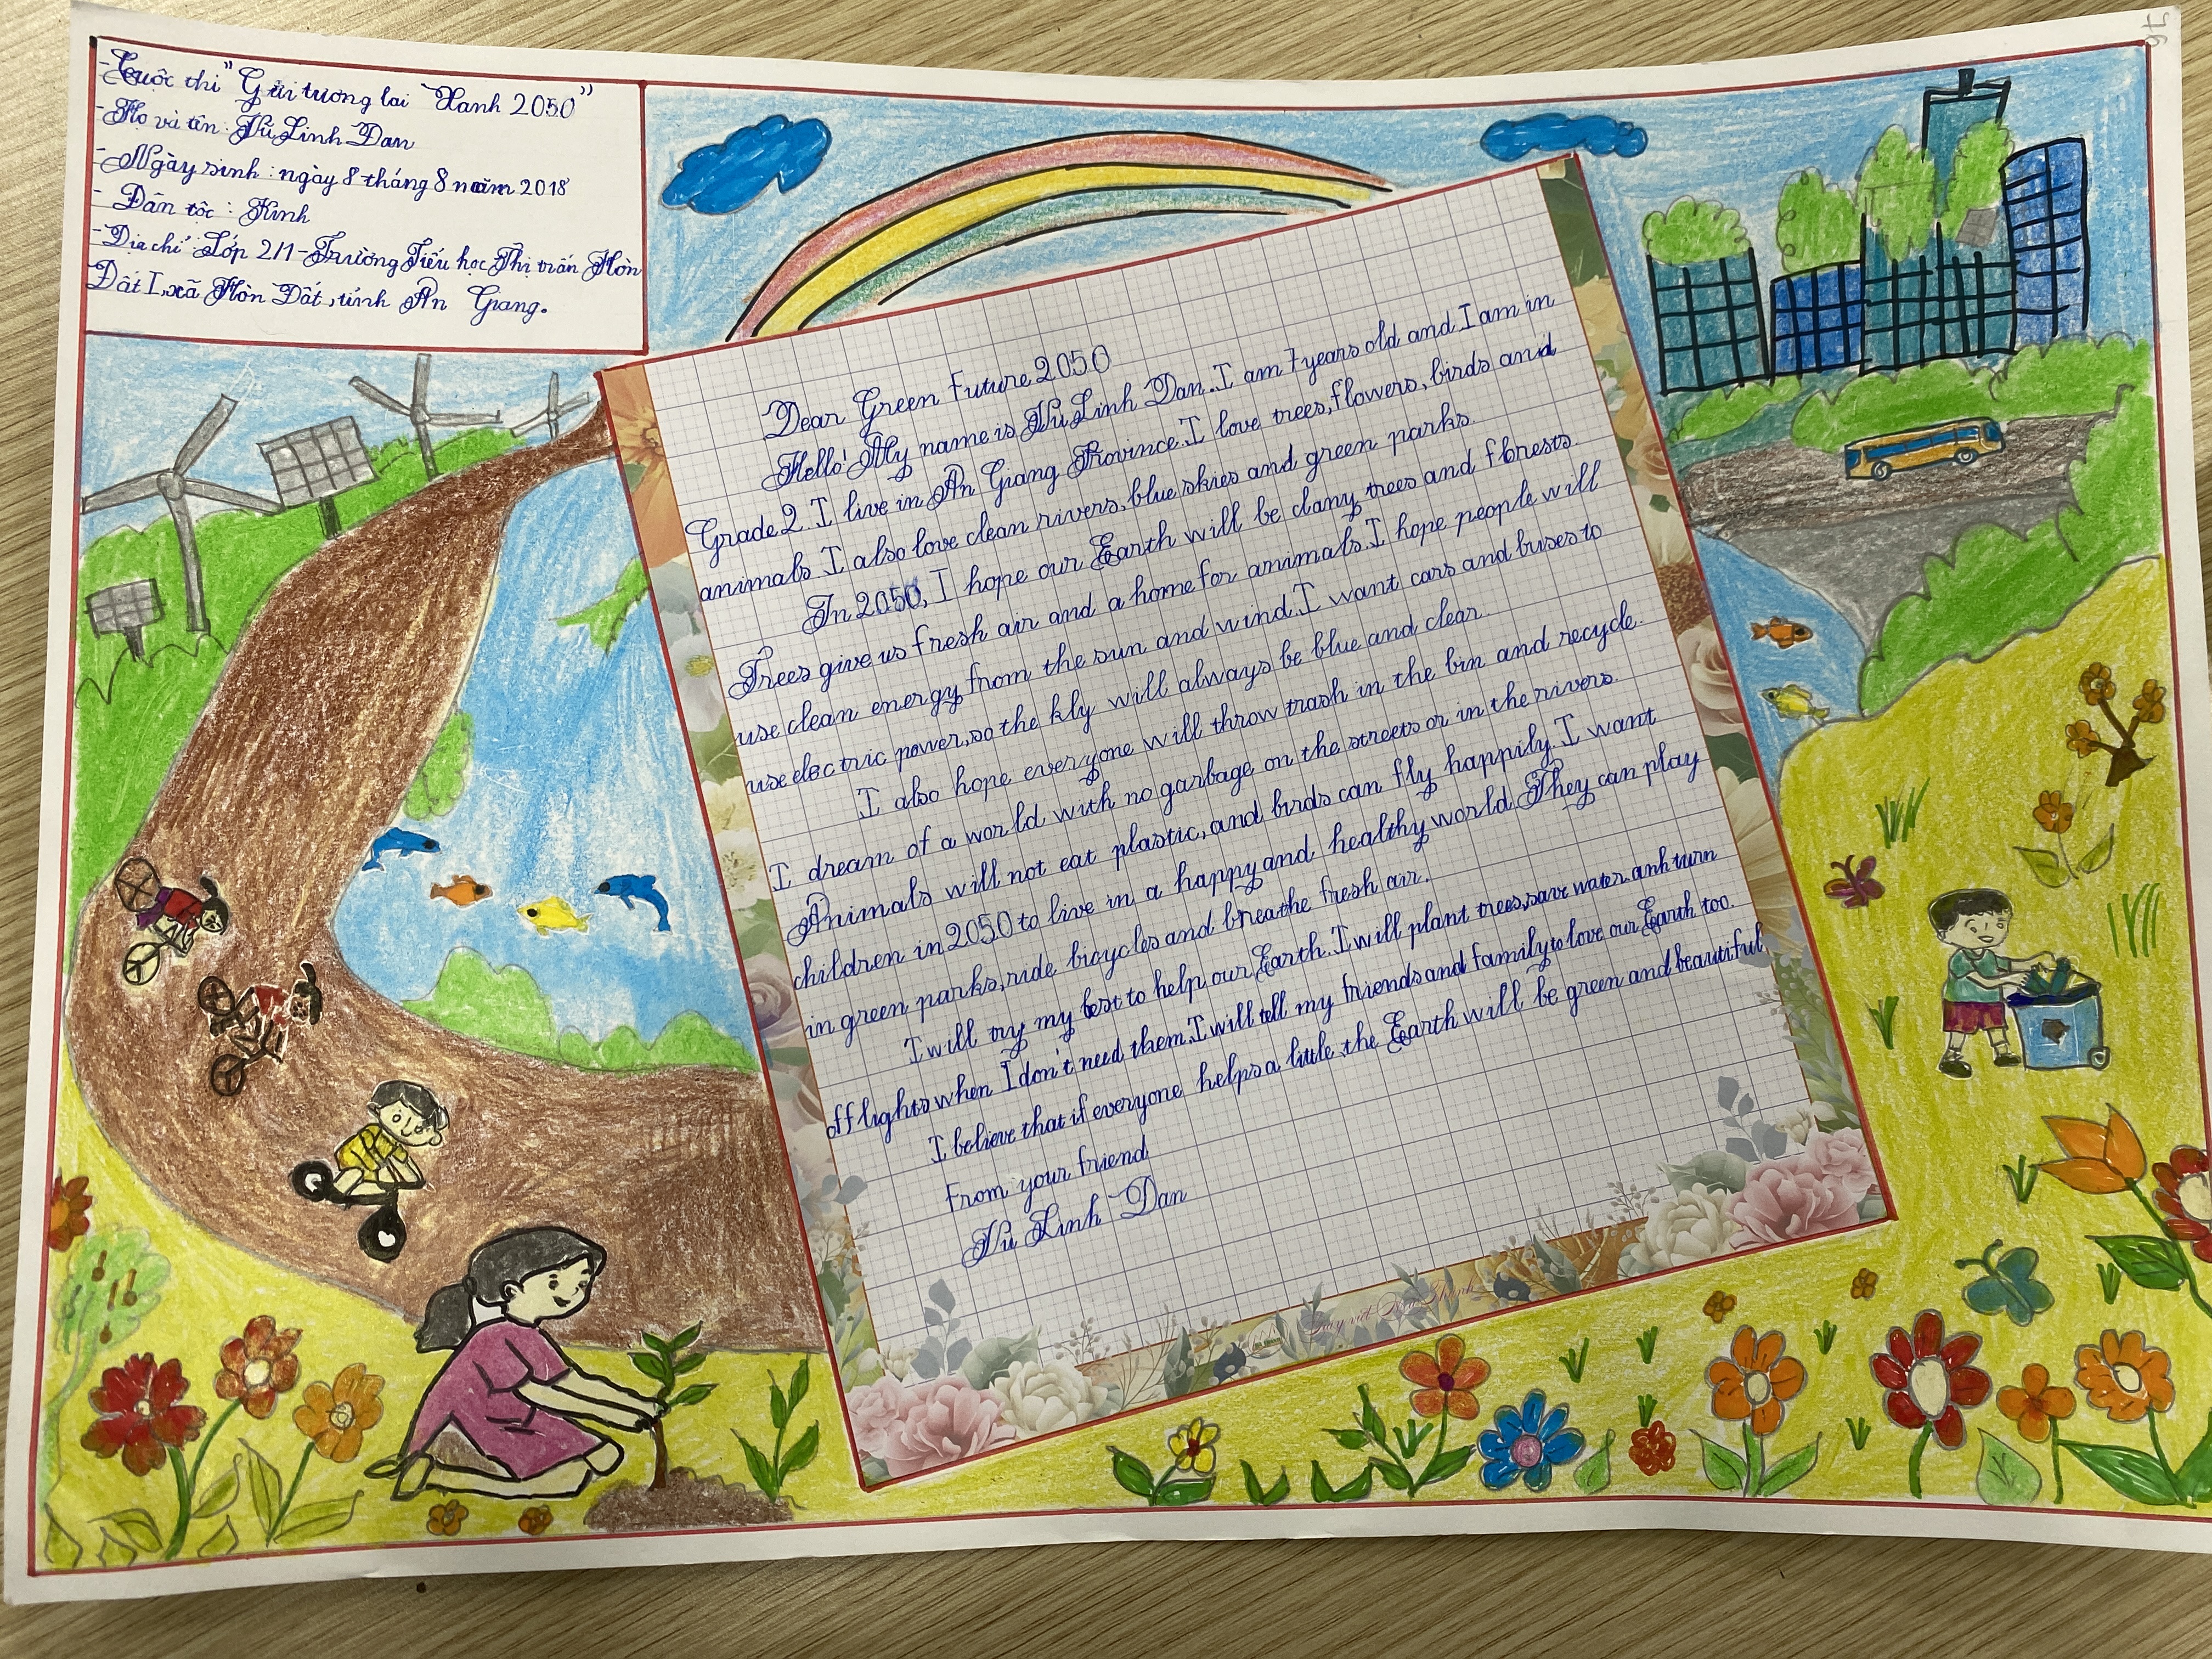 - Cuộc thi "Gửi tương lai Xanh 2050"
- Họ và tên: Vũ Linh Đan
- Ngày sinh: ngày 8 tháng 8 năm 2018
- Dân tộc: Kinh
- Địa chỉ: Lớp 2/1 - Trường Tiểu học Thị trấn Hòn
Đất I, xã Hòn Đất, tỉnh An Giang.
Dear Green Future 2050
Hello! My name is Vũ Linh Dan. I am 7 years old and I am in
Grade 2. I live in An Giang Province. I love trees, flowers, birds and
animals. I also love clean rivers, blue skies and green parks.
In 2050, I hope our Earth will be clany trees and forests.
Trees give us fresh air and a home for animals. I hope people will
use clean energy from the sun and wind. I want cars and buses to
use electric power, so the kly will always be blue and clear.
I also hope everyone will throw trash in the bin and recycle.
I dream of a world with no garbage on the streets or in the rivers.
Animals will not eat plastic, and birds can fly happily. I want
children in 2050 to live in a happy and healthy world. They can play
in green parks, ride bicycles and breathe fresh air.
I will try my best to help our Earth. I will plant trees, save water anh turn
off lights when I don't need them. I will tell my friends and family to love our Earth too.
I believe that if everyone helps a little, the Earth will be green and beautiful.
From your friend
Vũ Linh Dan